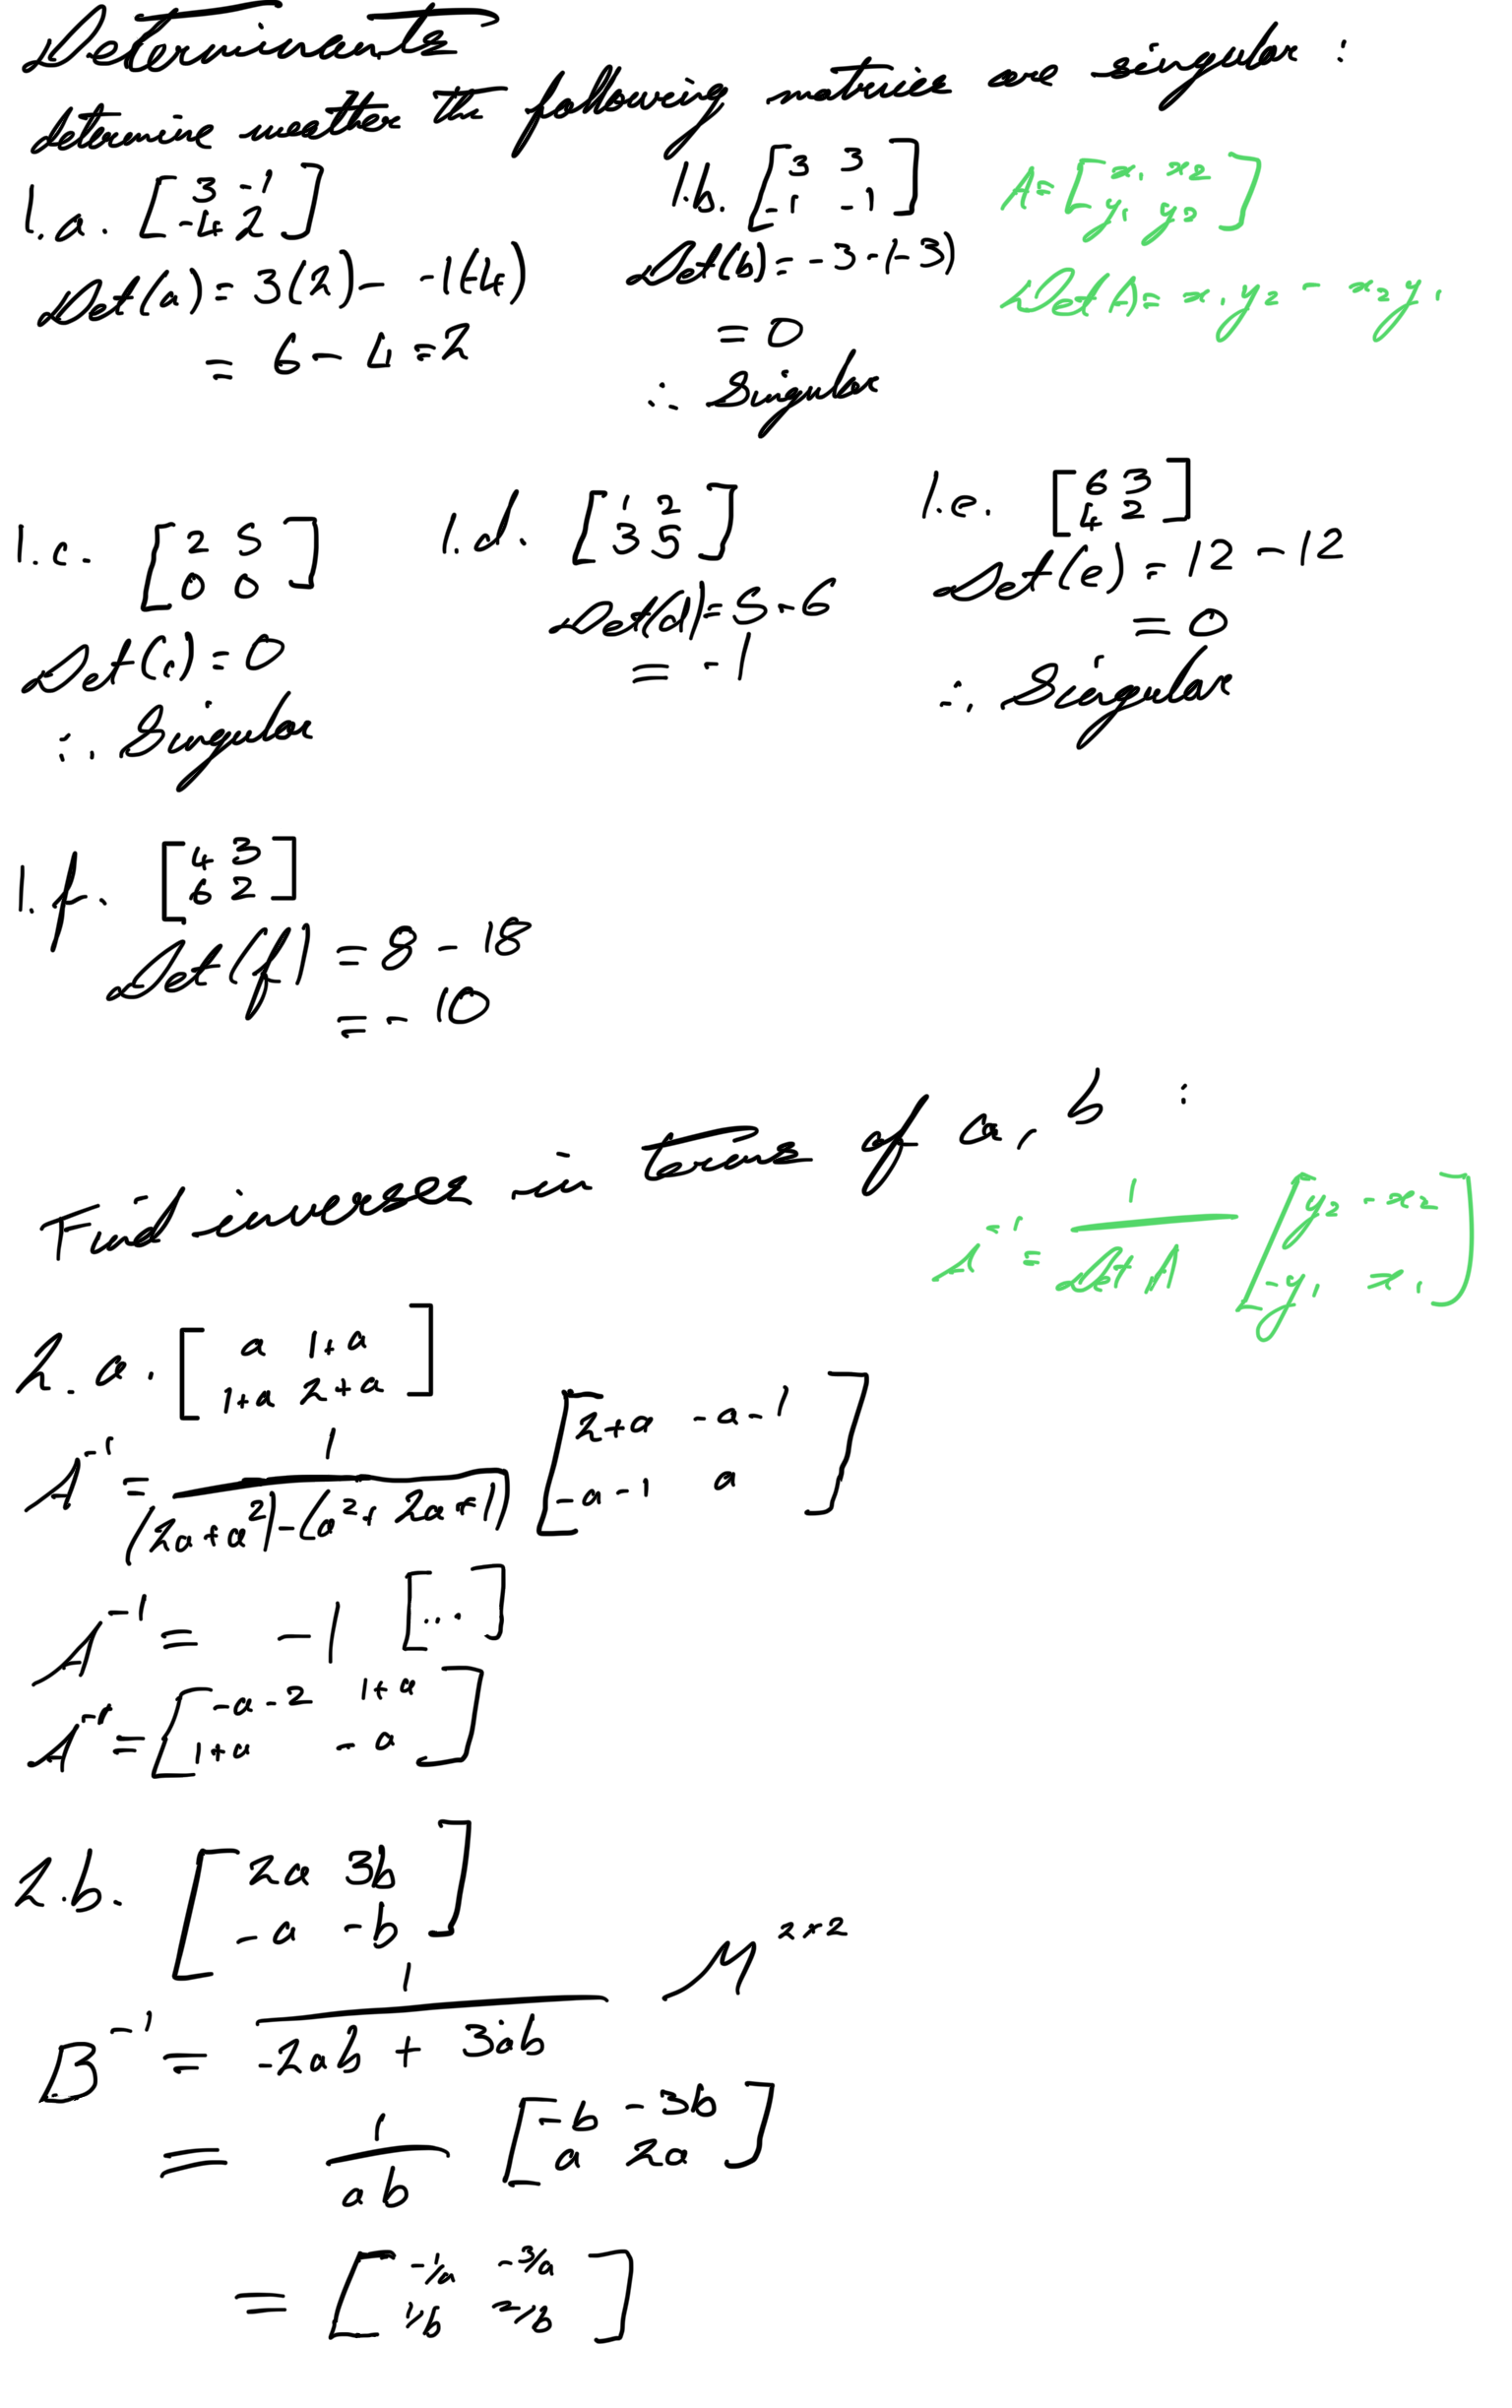 Determinants
determine weather the following matricie are singular :
1.a. [ 3 -1
-4 2 ]
Det(a) = 3(2) - -1(-4)
= 6 - 4 = 2
1.b. [ 3 3
-1 -1 ]
Det(b) = -3 - (-3)
= 0
∴ Singular
A = [ x₁ x₂
y₁ y₂ ]
Det A = x₁y₂ - x₂y₁
1.c. [ 2 5
0 0 ]
Det(c) = 0
∴ Singular
1.d. [ 1 2
3 5 ]
Det(d) = 5 - 6
= -1
1.e. [ 6 3
4 2 ]
Det(e) = 12 - 12
= 0
∴ Singular
1.f. [ 4 3
6 2 ]
Det(f) = 8 - 18
= -10
Find inverses in terms of a, b :
A⁻¹ = 1/det A [ y₂ -x₂
-y₁ x₁ ]
2.a. [ a 1+a
1+a 2+a ]
A⁻¹ = 1/((2a+a²)-(a²+2a+1)) [ 2+a -a-1
-a-1 a ]
A⁻¹ = -1 [...]
A⁻¹ = [ -a-2 1+a
1+a -a ]
2.b. [ 2a 3b
-a -b ]
B⁻¹ = 1/(-2ab + 3ab) M²ˣ²
= 1/ab [ -b -3b
a 2a ]
= [ -1/a -3/a
1/b 2/b ]